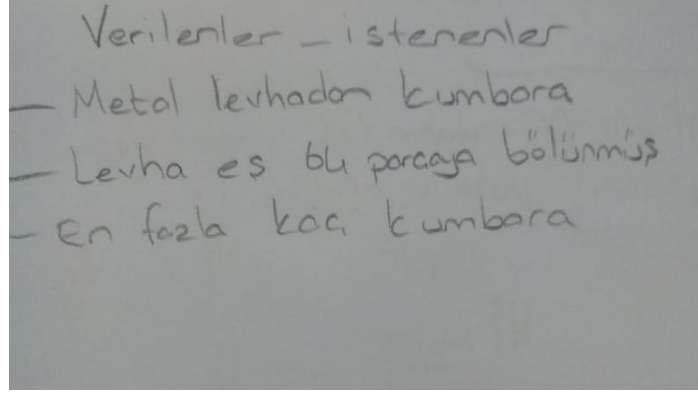 Verilenler - istenenler
- Metal levhadan kumbara
- Levha eş 64 parçaya bölünmüş
- En fazla kaç kumbara